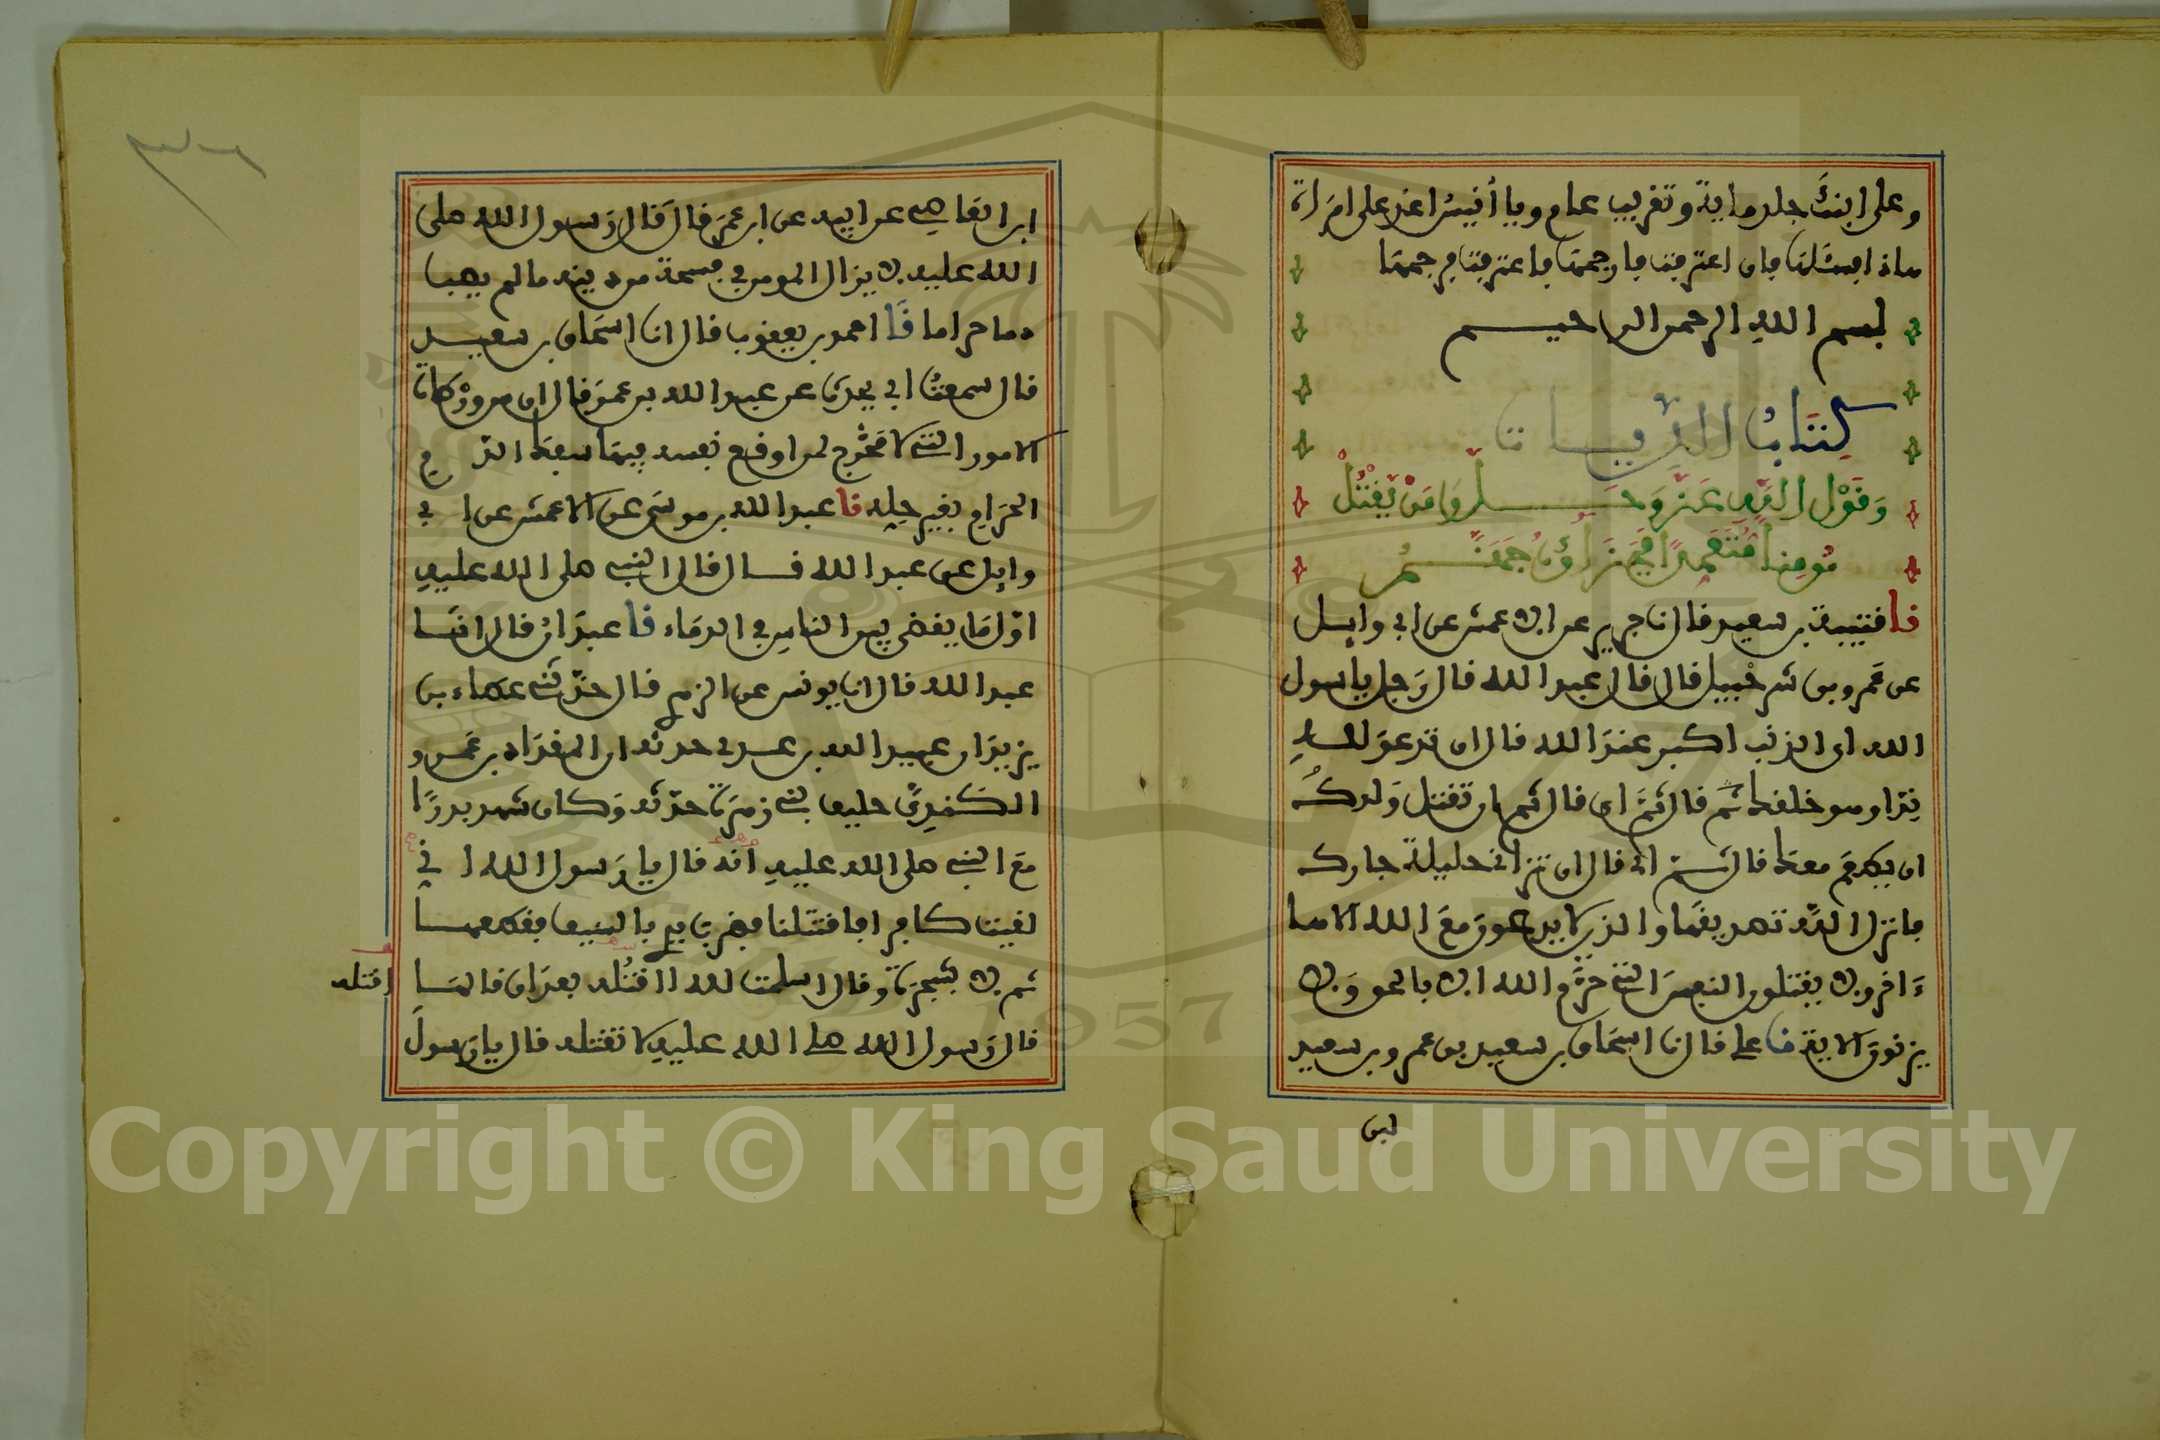 وعلى ابنك جلد ماية وتغريب عام ويا أنيس اغد على امراة
هاذا فسئلها فان اعترفت فارجمها فاعترفت فرجمها
بسم الله الرحمن الراحيم
كتاب الديات
وَقَوْلِ اللهِ عَزَّ وَجَلَّ وَمَنْ يَقْتُلْ
مُومِنا مُتَعَمِدًا فَجَزَاؤُهُ جَهَنَّمُ
نا قتيبة بن سعيد قال نا جرير عن الاعمش عن ابي وايل
عن عَمرو بن شرحْبيل قال قال عبد الله قال رَجل يا رسول
الله اي الذنب اكبر عندَ الله قال ان تدعوَ للهِ
نِدّا وهو خلقك ثم قال ثمَّ اي قال ثم ان تقتل وَلدكَ
ان يطعَم معك قال ثم اي قال ان تزاني حليلة جارك
فانزل الله تصديقَها والذين لا يدعونَ معَ الله الاها
ءَاخر ولا يقتلون النفسَ التي حرَّم الله الا بالحق وَلا
يزنونَ الاية نا علي قال نا اسحاق بن سعيد بن عمرو بن سعيد
لبن
ابن العاصي عن ابيه عن ابن عمَر قال قال رَسول الله صلى
الله عليه لا يزال المومن في فسحة من دينه ما لم يصب
دما حراما نَا احمد بن يعقوب قال انا اسحَاق بن سعيد
قال سمعتُ ابي يحدث عن عبد الله بن عمَر قال ان من ورْطات
الامور التي لا مَخْرج لمن اوقع نفسه فيهَا سفك الدّم
الحرَامِ بغيرِ حِلِه نا عبد الله بن موسَى عن الاعمش عن ابي
وايل عن عبد الله قال قال النبي صلى الله عليهِ
اوّل مَا يقضى بين الناس في الدمَاء نا عبدَانُ قال انَا
عبد الله قال انا يونس عن الزهري قال حدّثني عطاء بن
يزيدَ ان عبيد الله بن عدي حدثه ان المقدَاد بن عَمرو
الكنديَّ حليف بني زهرَة حدّثه وَكان شهد بدرًا
معَ النبي صلى الله عليهِ انه قال يا رَسول الله اني
لقيت كافرا فاقتتلنا فضرب يدي بالسيف فقطعها
ثم لاذ بشجرَة وقال اسلمت لله ااقتُله بعدَ ان قالهَا
اقتله
قال رَسول الله صلى الله عليهِ لا تقتله قال يا رَسولَ
1957
Copyright © King Saud University